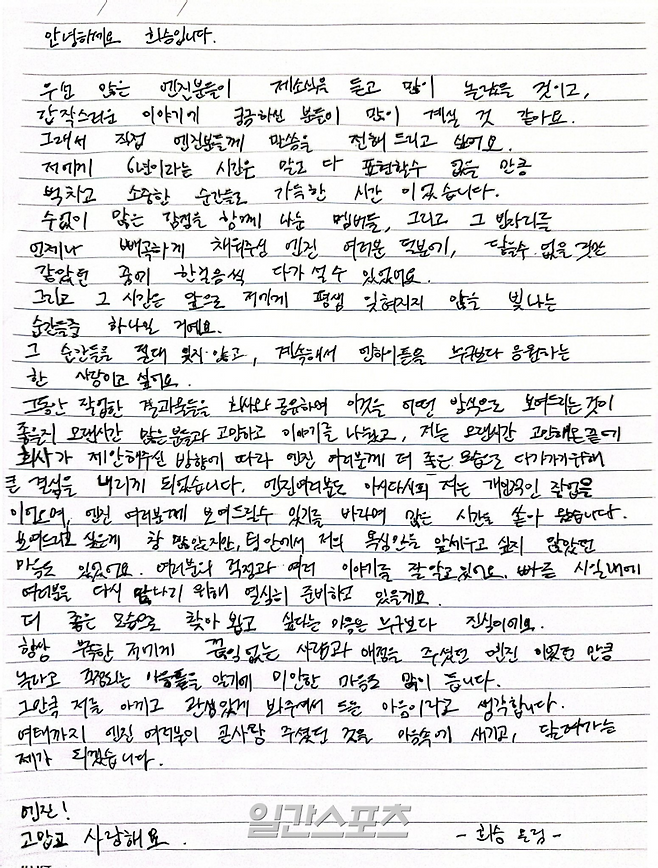 안녕하세요 희승입니다.
우선 많은 엔진분들이 제소식을 듣고 많이 놀랐을 것이고,
갑작스러운 이야기에 궁금하신 분들이 많이 계실 것 같아요.
그래서 직접 엔진분들께 말씀을 전해 드리고 싶어요.
저에게 6년이라는 시간은 말로 다 표현할수 없을 만큼
벅차고 소중한 순간들로 가득한 시간 이었습니다.
수없이 많은 감정을 함께 나눈 멤버들, 그리고 그 빈자리를
언제나 빼곡하게 채워주신 엔진 여러분 덕분에, 닿을수 없을 것만
같았던 꿈에 한걸음씩 다가 설 수 있었어요.
그리고 그 시간은 앞으로 저에게 평생 잊혀지지 않을 빛나는
순간들중 하나일 거예요.
그 순간들을 절대 잊지 않고, 계속해서 엔하이픈을 누구보다 응원하는
한 사람이고 싶어요.
그동안 작업한 결과물들을 회사와 공유하며 이것을 어떤 방식으로 보여드리는 것이
좋을지 오랜시간 많은 분들과 고민하고 이야기를 나눴고, 저는 오랜시간 고민해온 끝에
회사가 제안해주신 방향에 따라 엔진 여러분께 더 좋은 모습으로 다가가기위해
큰 결심을 내리게 되었습니다. 엔진여러분도 아시다시피 저는 개인적인 작업을
이어오며, 엔진 여러분께 보여드릴수 있기를 바라며 많은 시간을 쏟아 왔습니다.
보여드리고 싶은게 참 많았지만, 팀 안에서 저의 욕심만을 앞세우고 싶지 않았던
마음도 있었어요. 여러분의 걱정과 여러 이야기를 잘 알고 있어요. 빠른 시일내에
여러분을 다시 만나기 위해 열심히 준비하고 있을게요.
더 좋은 모습으로 찾아 뵙고 싶다는 마음은 누구보다 진심이에요.
항상 부족한 저에게 끊임 없는 사랑과 애정을 주셨던 엔진 이었던 만큼
놀라고 걱정되는 마음들을 알기에 미안한 마음도 많이 듭니다.
그만큼 저를 아끼고 관심있게 봐주셔서 드는 마음이라고 생각합니다.
여태까지 엔진 여러분이 큰사랑 주셨던 것을 마음속에 새기고, 달려가는
제가 되겠습니다.
엔진!
고맙고 사랑해요.
- 희승 올림 -
일간스포츠